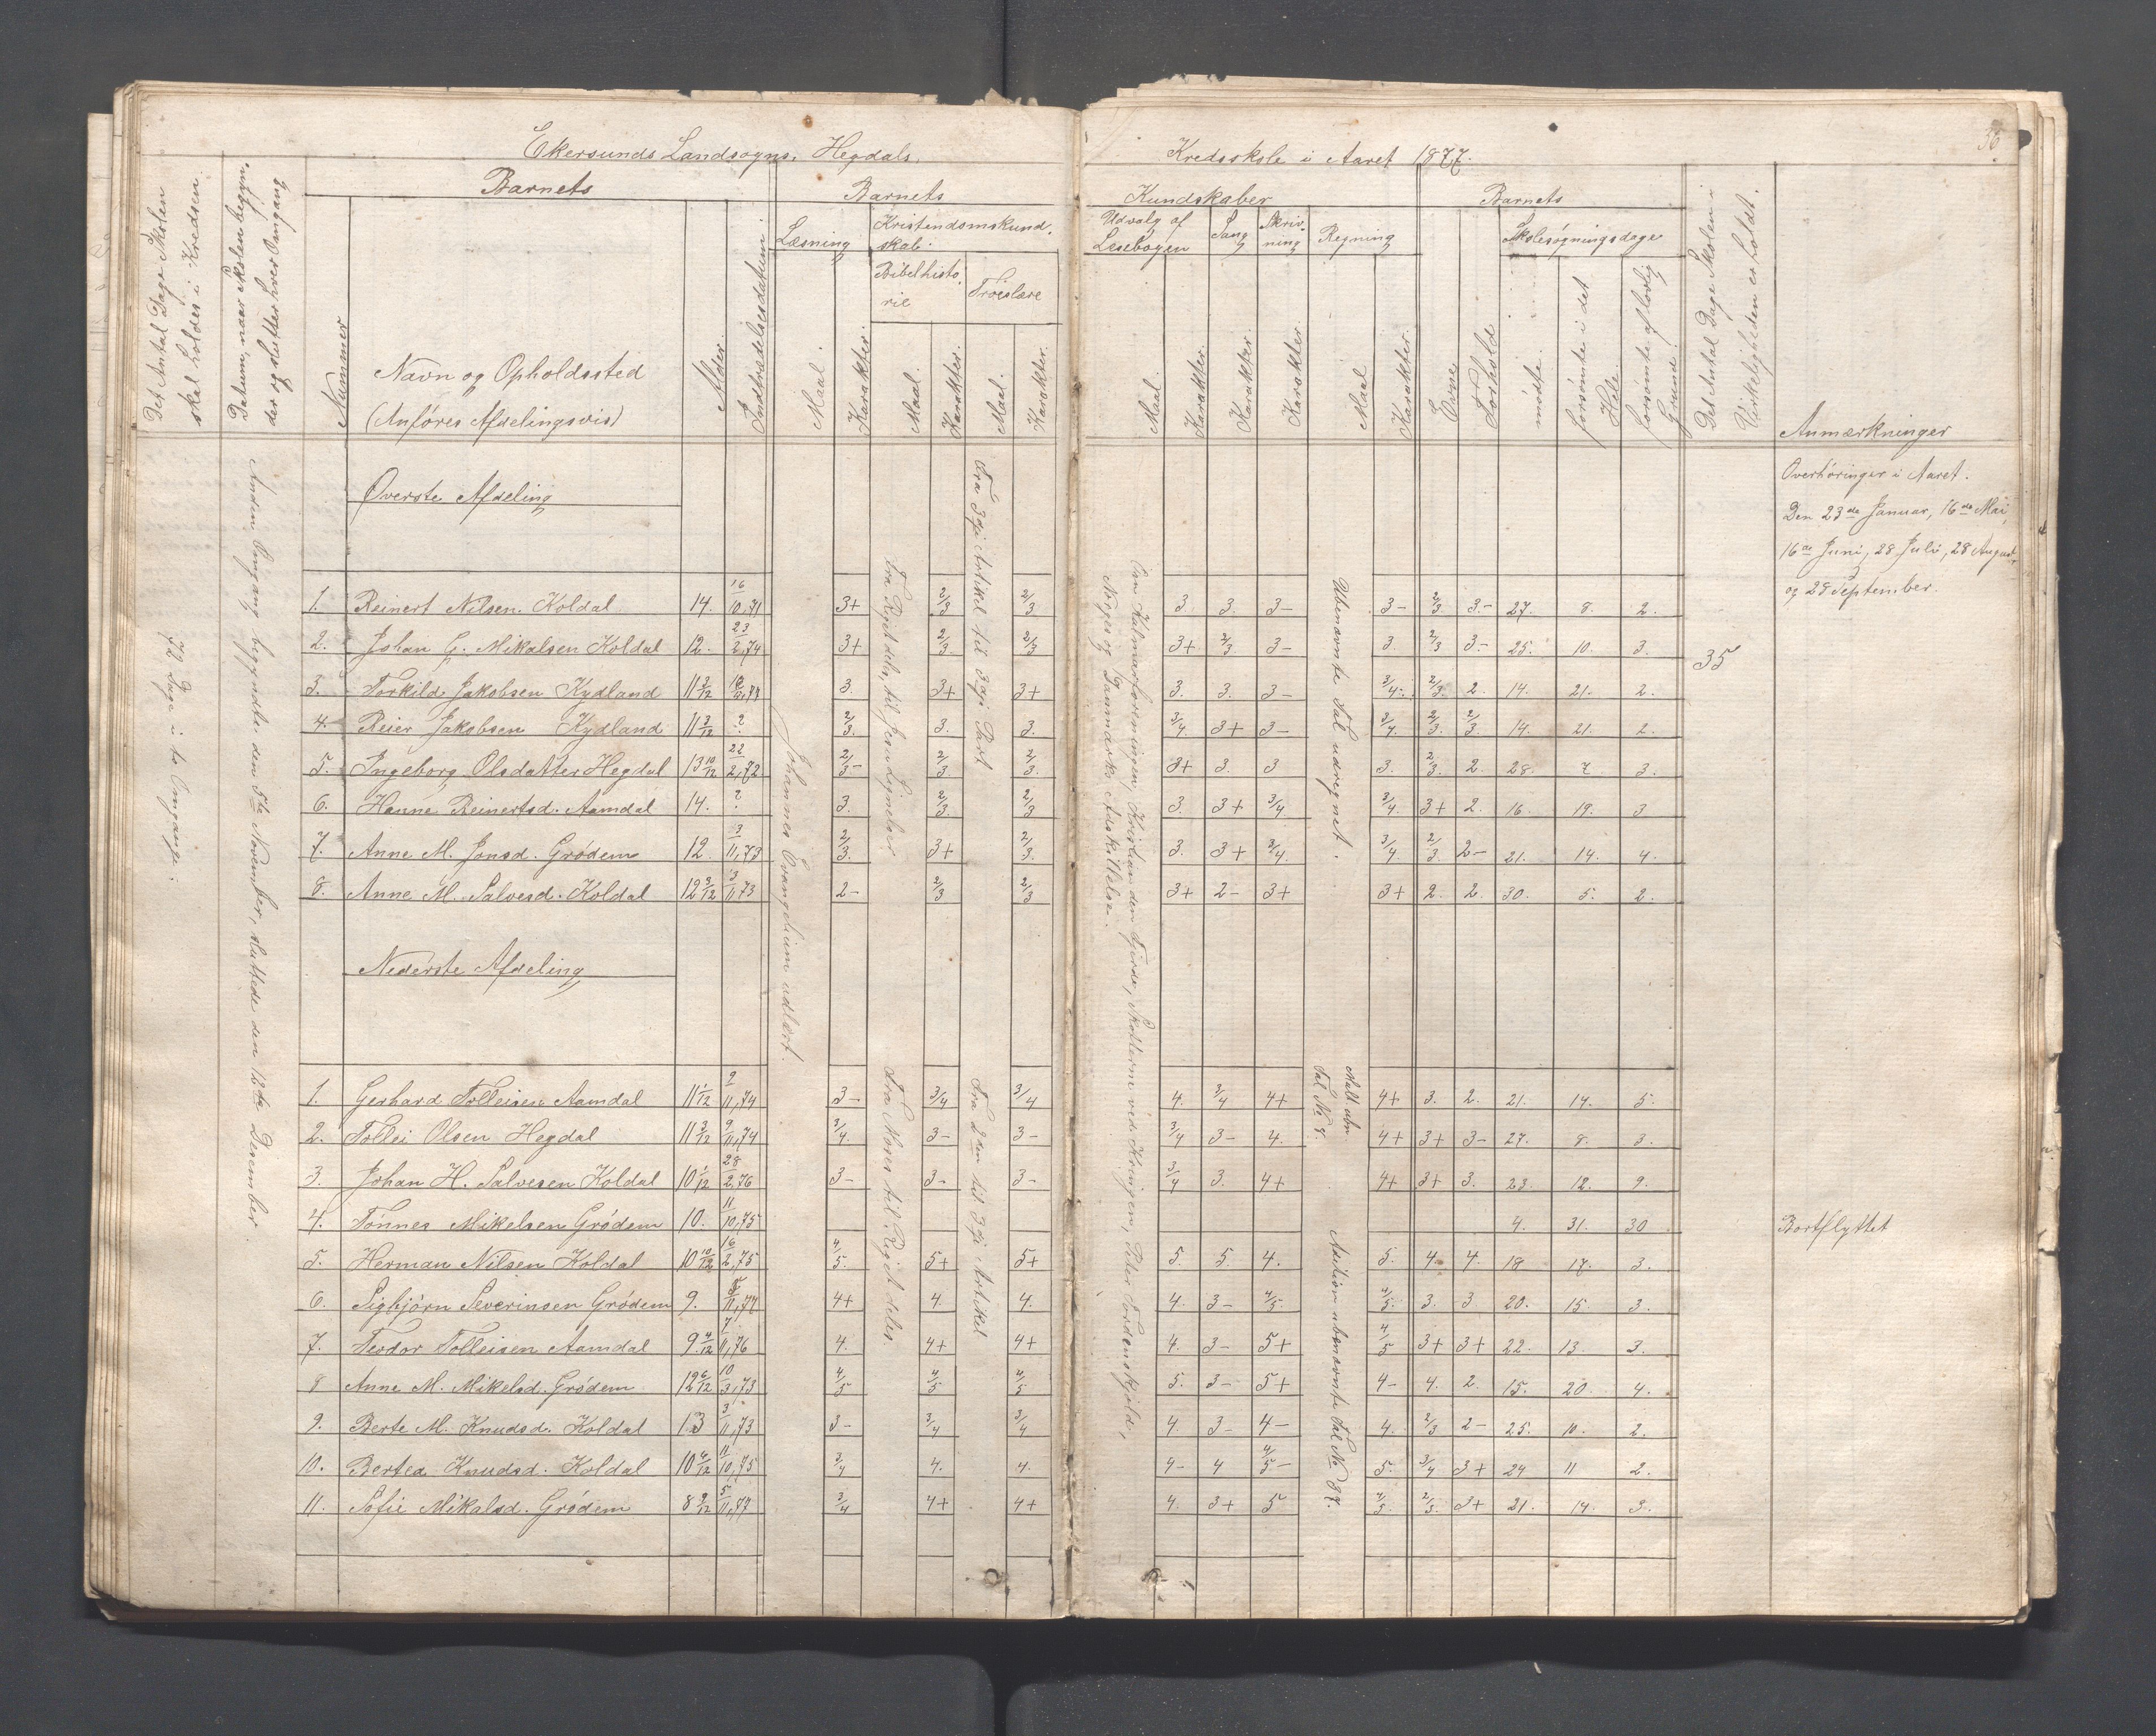 36
Ekersunds Landsogns. Hegdals. Kredsskole i Aaret 1877.
Det Antal Dage Skolen skal holdes i Kredsen.
Datum, naar Skolen begynder og slutter hver Omgang
Barnets
Nummer
Navn og Opholdssted
(Anføres Afdelingsvis)
Alder.
Indtrædelsesdatum
Barnets
Læsning
Maal.
Karakter.
Kristendomskundskab.
Bibelhistorie
Maal.
Karakter.
Troeslære
Maal.
Karakter.
Kundskaber
Udvalg af Læsebogen
Maal.
Karakter.
Sang
Karakter.
Skrivning
Karakter.
Regning
Maal
Karakter.
Barnets
Evne
Forhold
Skolesøgningsdage
mødte.
forsømte i det Hele.
forsømte af lovlig Grund.
Det Antal Dage Skolen i Virkeligheden er holdt.
Anmærkninger
72 Dage i to Omgange.
Anden Omgang begyndte den 5te November, sluttede den 18de December.
Øverste Afdeling
Johannes Evangelium udlært.
Fra Riget dele, til Jesu Lignelser
Fra 3die Artikel til 3die Part
Om Kalmarforeningen, Kristian den Fjerde, Skotterne ved Kringen, Peter Tordenskjold,
Norges og Danmarks Adskillelse.
Ubenævnte Tal udregnet.
Overhøringer i Aaret.
Den 23de Januar, 16de Mai,
16de Juni, 28 Juli, 28 August,
og 28 September.
35
1. Reinert Nilsen. Koldal 14. 16/10,71 3+ 2/3 2/3 3. 3. 3- 3- 2/3. 3.- 27. 8. 2.
2. Johan G. Mikalsen Koldal 12. 23/2,74 3+ 2/3. 2/3 3+ 2/3. 3- 3. 2/3 3.- 25. 10. 3.
3. Torkild Jakobsen Kydland 11 3/12 3. 3+ 3+ 3. 3. 3- 3/4. 2/3. 2. 14. 21. 2.
4. Reier Jakobsen Kydland 11 3/12 ? 2/3. 3. 3. 3/4 3+ 3- 3/4. 2/3 2/3. 14. 21. 2.
5. Ingeborg Olsdatter Hegdal 13 10/12 22/2,72 2/3- 2/3. 2/3. 3+ 3. 3 3. 2/3. 2. 28. 7 3.
6. Hanne Reinertsd. Aamdal 14. ? 3. 2/3. 2/3. 3. 3+ 3/4 3/4. 3+ 2. 16. 19. 3
7. Anne M. Jonsd. Grødem 12. 3/11,73 2/3. 3+ 2/3. 3. 3+ 3/4. 3/4 2/3. 2- 21. 14. 4.
8. Anne M. Salvesd. Koldal 12 3/12 3/11,73 2- 2/3 2/3 3+ 2- 3+ 3+ 2. 2. 30. 5. 2.
Nederste Afdeling
Fra Moses til Riget deles.
Fra 2den til 3die Artikel
Mult. ubn Tal No 4.
Addition ubenævnte Tal No 87.
1. Gerhard Tolleisen Aamdal 11 1/12 2/11,74 3- 3/4 3/4 4. 3/4 4+ 4+ 3. 2. 21. 14. 5.
2. Tollei Olsen Hegdal 11 3/12 9/11,74 3/4. 3- 3- 3/4 3- 4. 4+ 3+ 3- 27. 8. 3.
3. Johan H. Salvesen Koldal 10 1/12 28/2,76 3- 3- 3- 3/4 3. 4+ 4+ 3+ 3. 23. 12. 9.
4. Tønnes Mikelsen Grødem 10. 11/10,75 4. 31. 30 Bortflyttet
5. Herman Nilsen Koldal 10 10/12 16/2,75 4/5. 5+ 5+ 5. 5. 4. 5. 4. 4. 18 17. 3.
6. Sigbjørn Severinsen Grødem 9. 5/11,77 4+ 4. 4. 4. 3- 4/5. 4/5. 3. 3 20. 15. 3.
7. Terdor Tolleisen Aamdal 9 4/12 7/11,76 4. 4+ 4+ 4. 3- 5+ 4/5 3+ 3+ 22. 13. 3.
8 Anne M. Mikelsd. Grødem 12 6/12 10/3,73 4/5 4/5 4/5 5. 3- 5+ 4- 4. 2. 15. 20. 4.
9. Berte M. Knudsd. Koldal 13 3/11,73 3- 3/4 3/4 4. 3- 4- 4. 2/3 2- 25. 10. 2.
10. Bertea Knudsd. Koldal 10 4/12 11/10,75 3/4 4. 4. 4- 4 4/5- 5. 3/4 3+ 24 11 2.
11. Sofie Mikalsd. Grødem 8 9/12 5/11,77 3/4 4+ 4+ 4. 3+ 5 4/5. 2/3. 3+ 21. 14. 3.